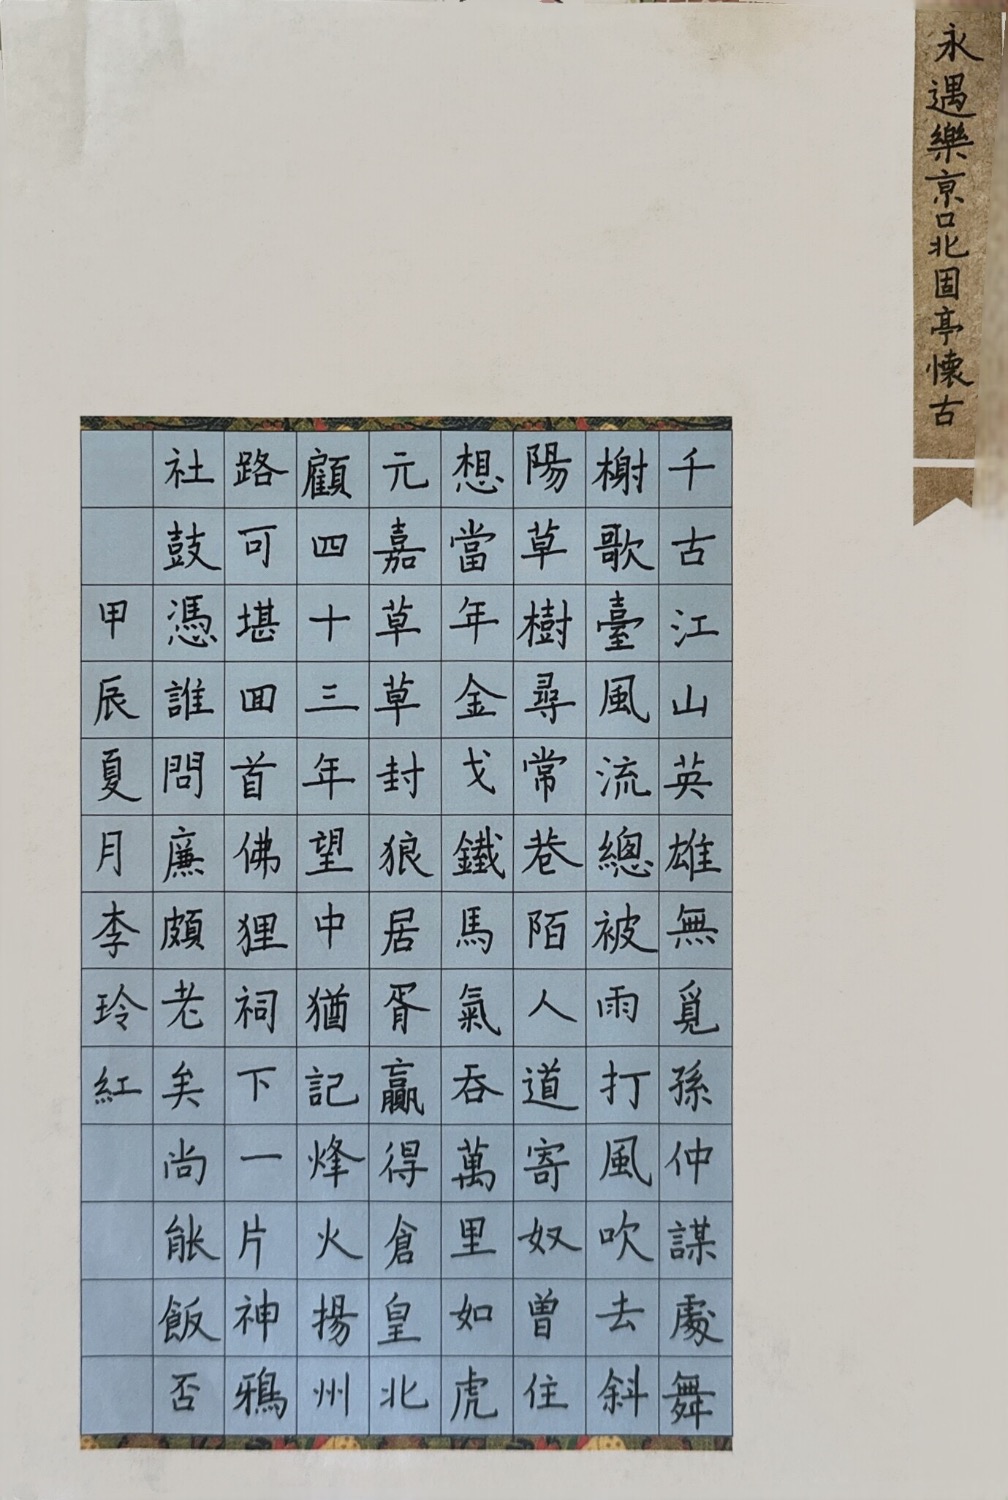 永遇樂京口北固亭懷古
千古江山英雄無覓孫仲謀處舞
榭歌臺風流總被雨打風吹去斜
陽草樹尋常巷陌人道寄奴曾住
想當年金戈鐵馬氣吞萬里如虎
元嘉草草封狼居胥贏得倉皇北
顧四十三年望中猶記烽火揚州
路可堪回首佛狸祠下一片神鴉
社鼓憑誰問廉頗老矣尚能飯否
甲辰夏月李玲紅